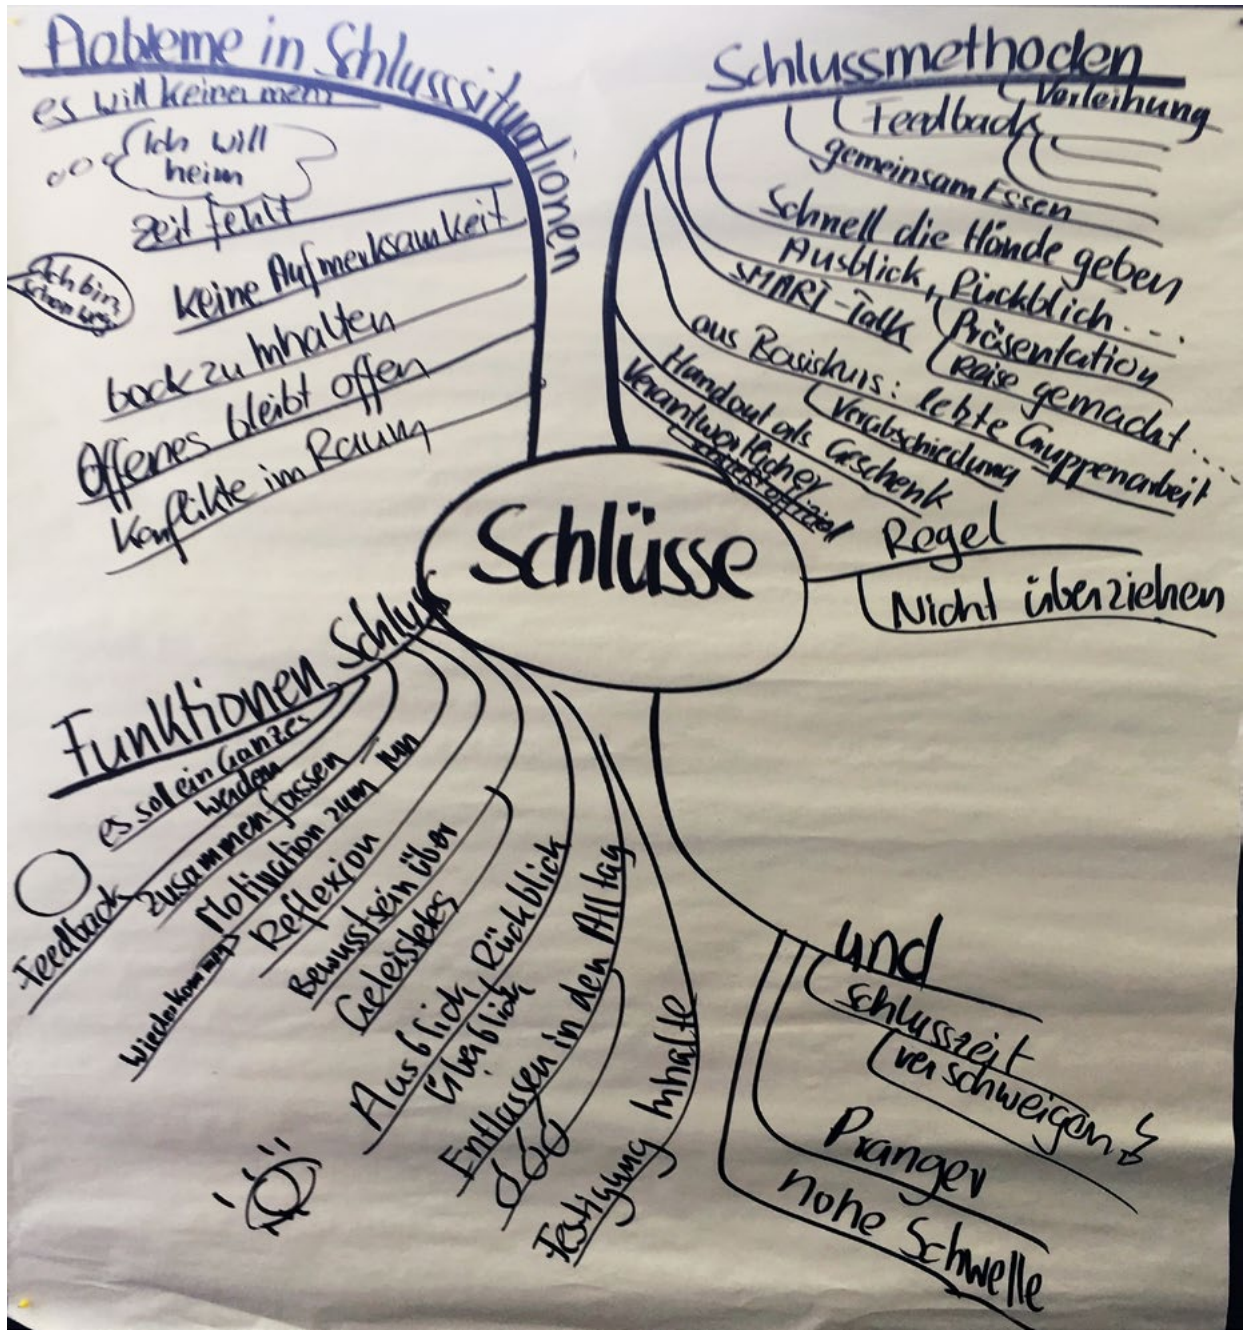 Schlüsse
Probleme in Schlusssituationen
es will keiner mehr
Ich will
heim
Zeit fehlt
keine Aufmerksamkeit
Ich bin
schon weg
bock zu Inhalten
Offenes bleibt offen
Konflikte im Raum
Schlussmethoden
Verleihung
Feedback
gemeinsam Essen
Schnell die Hände geben
Ausblick, Rückblick...
Präsentation
Reise gemacht...
SMART-Talk
aus Basiskurs: letzte Gruppenarbeit
Verabschiedung
Handout als Geschenk
Verantwortlicher
schließt offiziell
Regel
Nicht überziehen
Funktionen Schluss
es soll ein Ganzes
werden
Feedback
zusammenfassen
Motivation zum tun
wiederkommen
Reflexion
Bewusstsein über
Geleistetes
Ausblick, Rückblick
Überblick
Entlassen in den Alltag
Festigung Inhalte
und
Schlusszeit
verschweigen
Pranger
hohe Schwelle